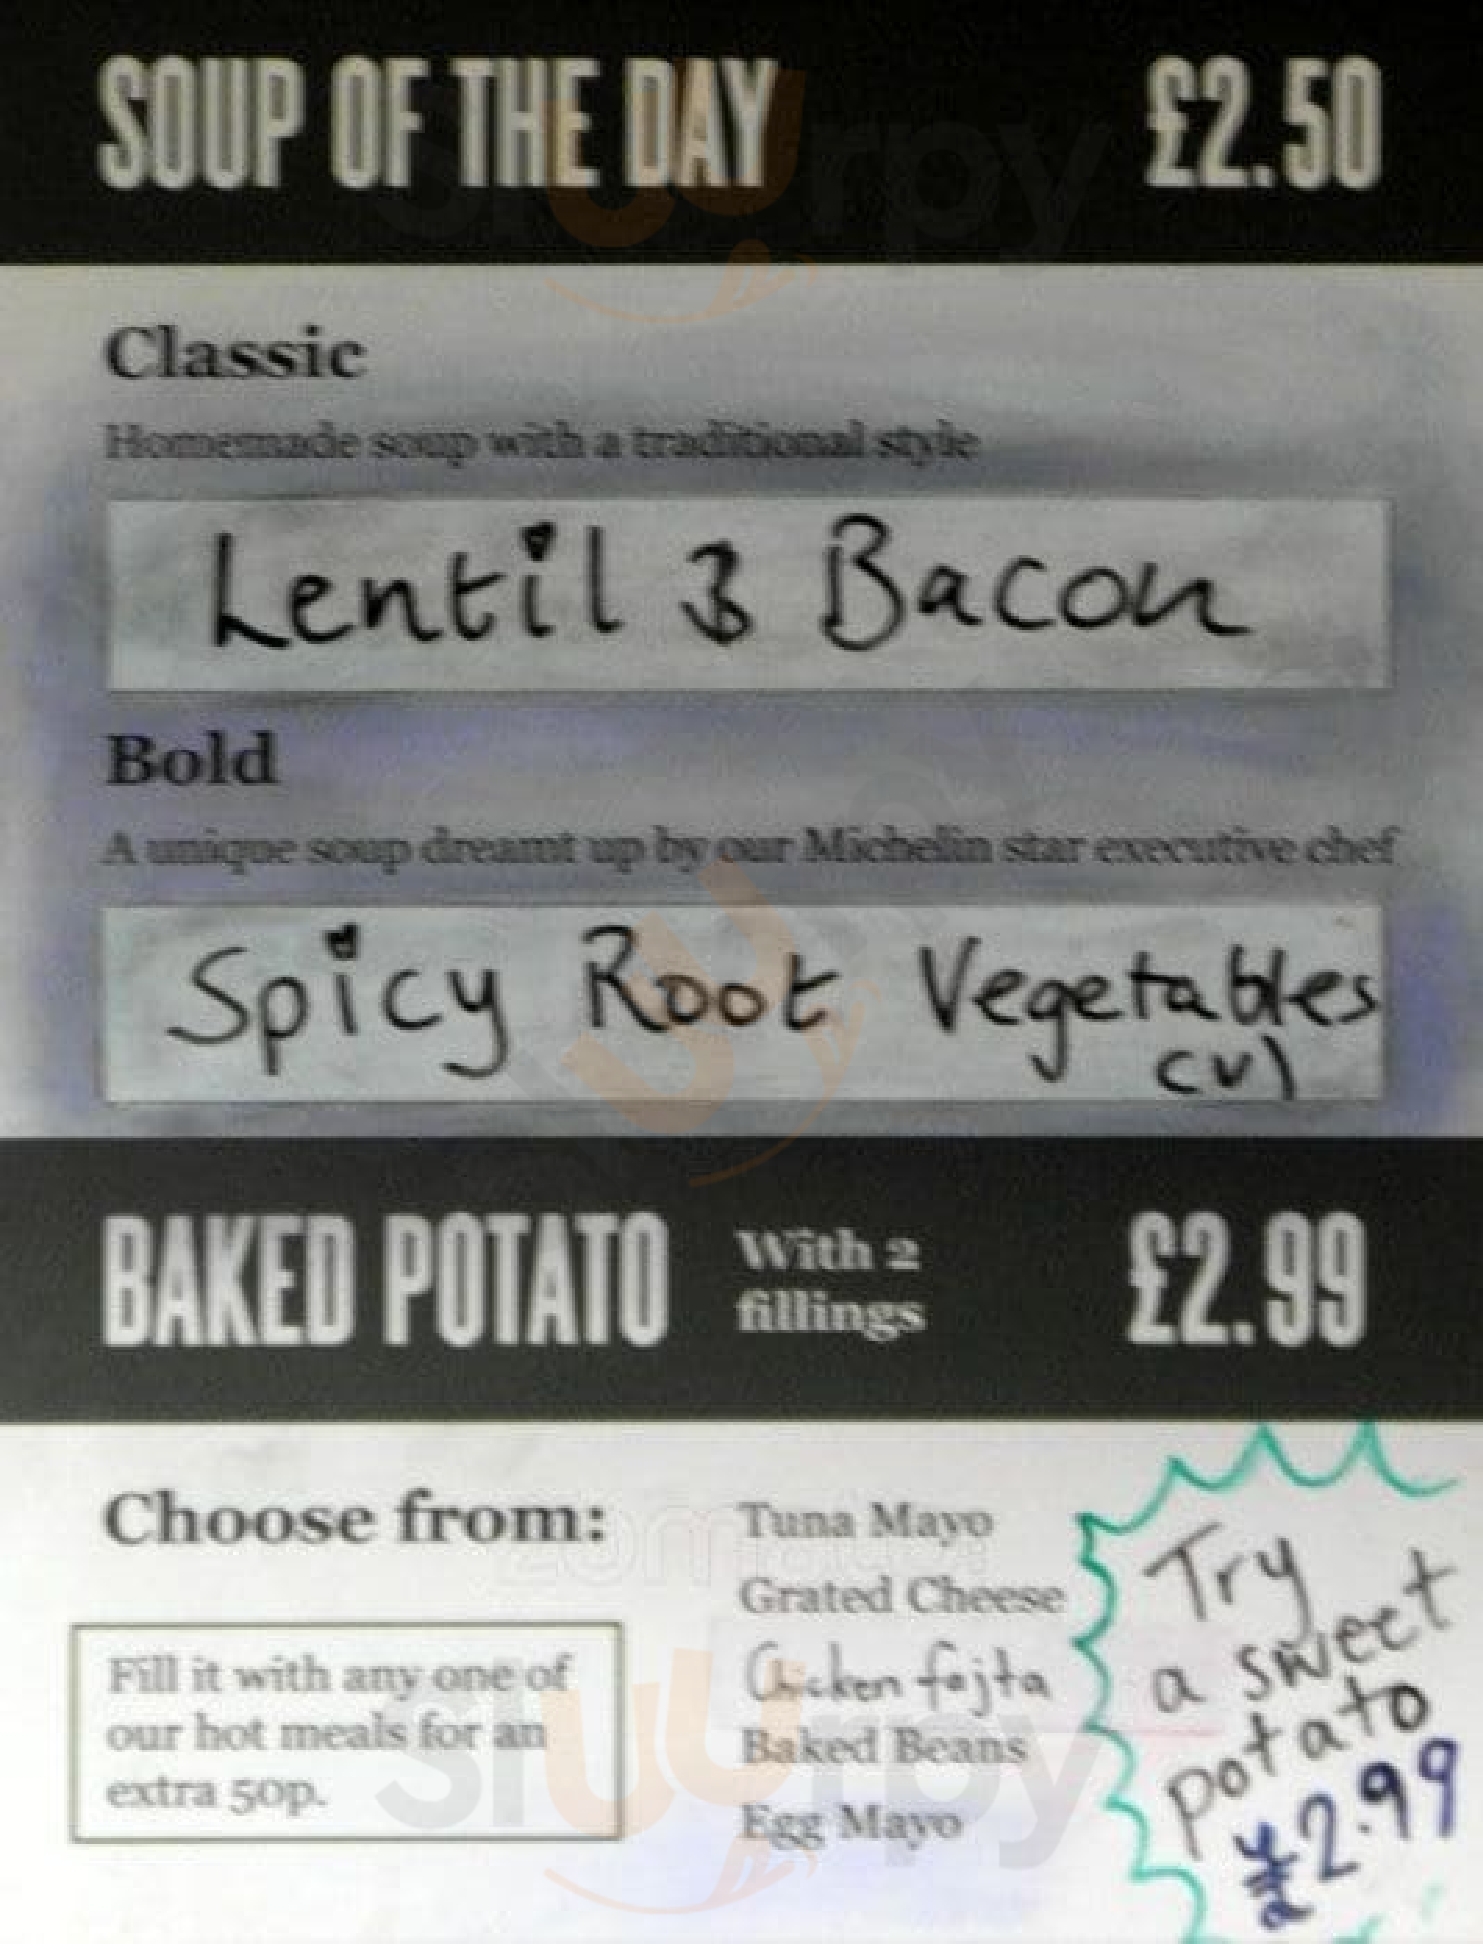 SOUP OF THE DAY £2.50
Classic
Homemade soup with a traditional style
Lentil & Bacon
Bold
A unique soup dreamt up by our Michelin star executive chef
Spicy Root Vegetables
(V)
BAKED POTATO With 2 fillings £2.99
Choose from:
Tuna Mayo
Grated Cheese
Chicken fajta
Baked Beans
Egg Mayo
Fill it with any one of
our hot meals for an
extra 50p.
Try
a sweet
potato
£2.99
sluurpy
zomato
sluurpy